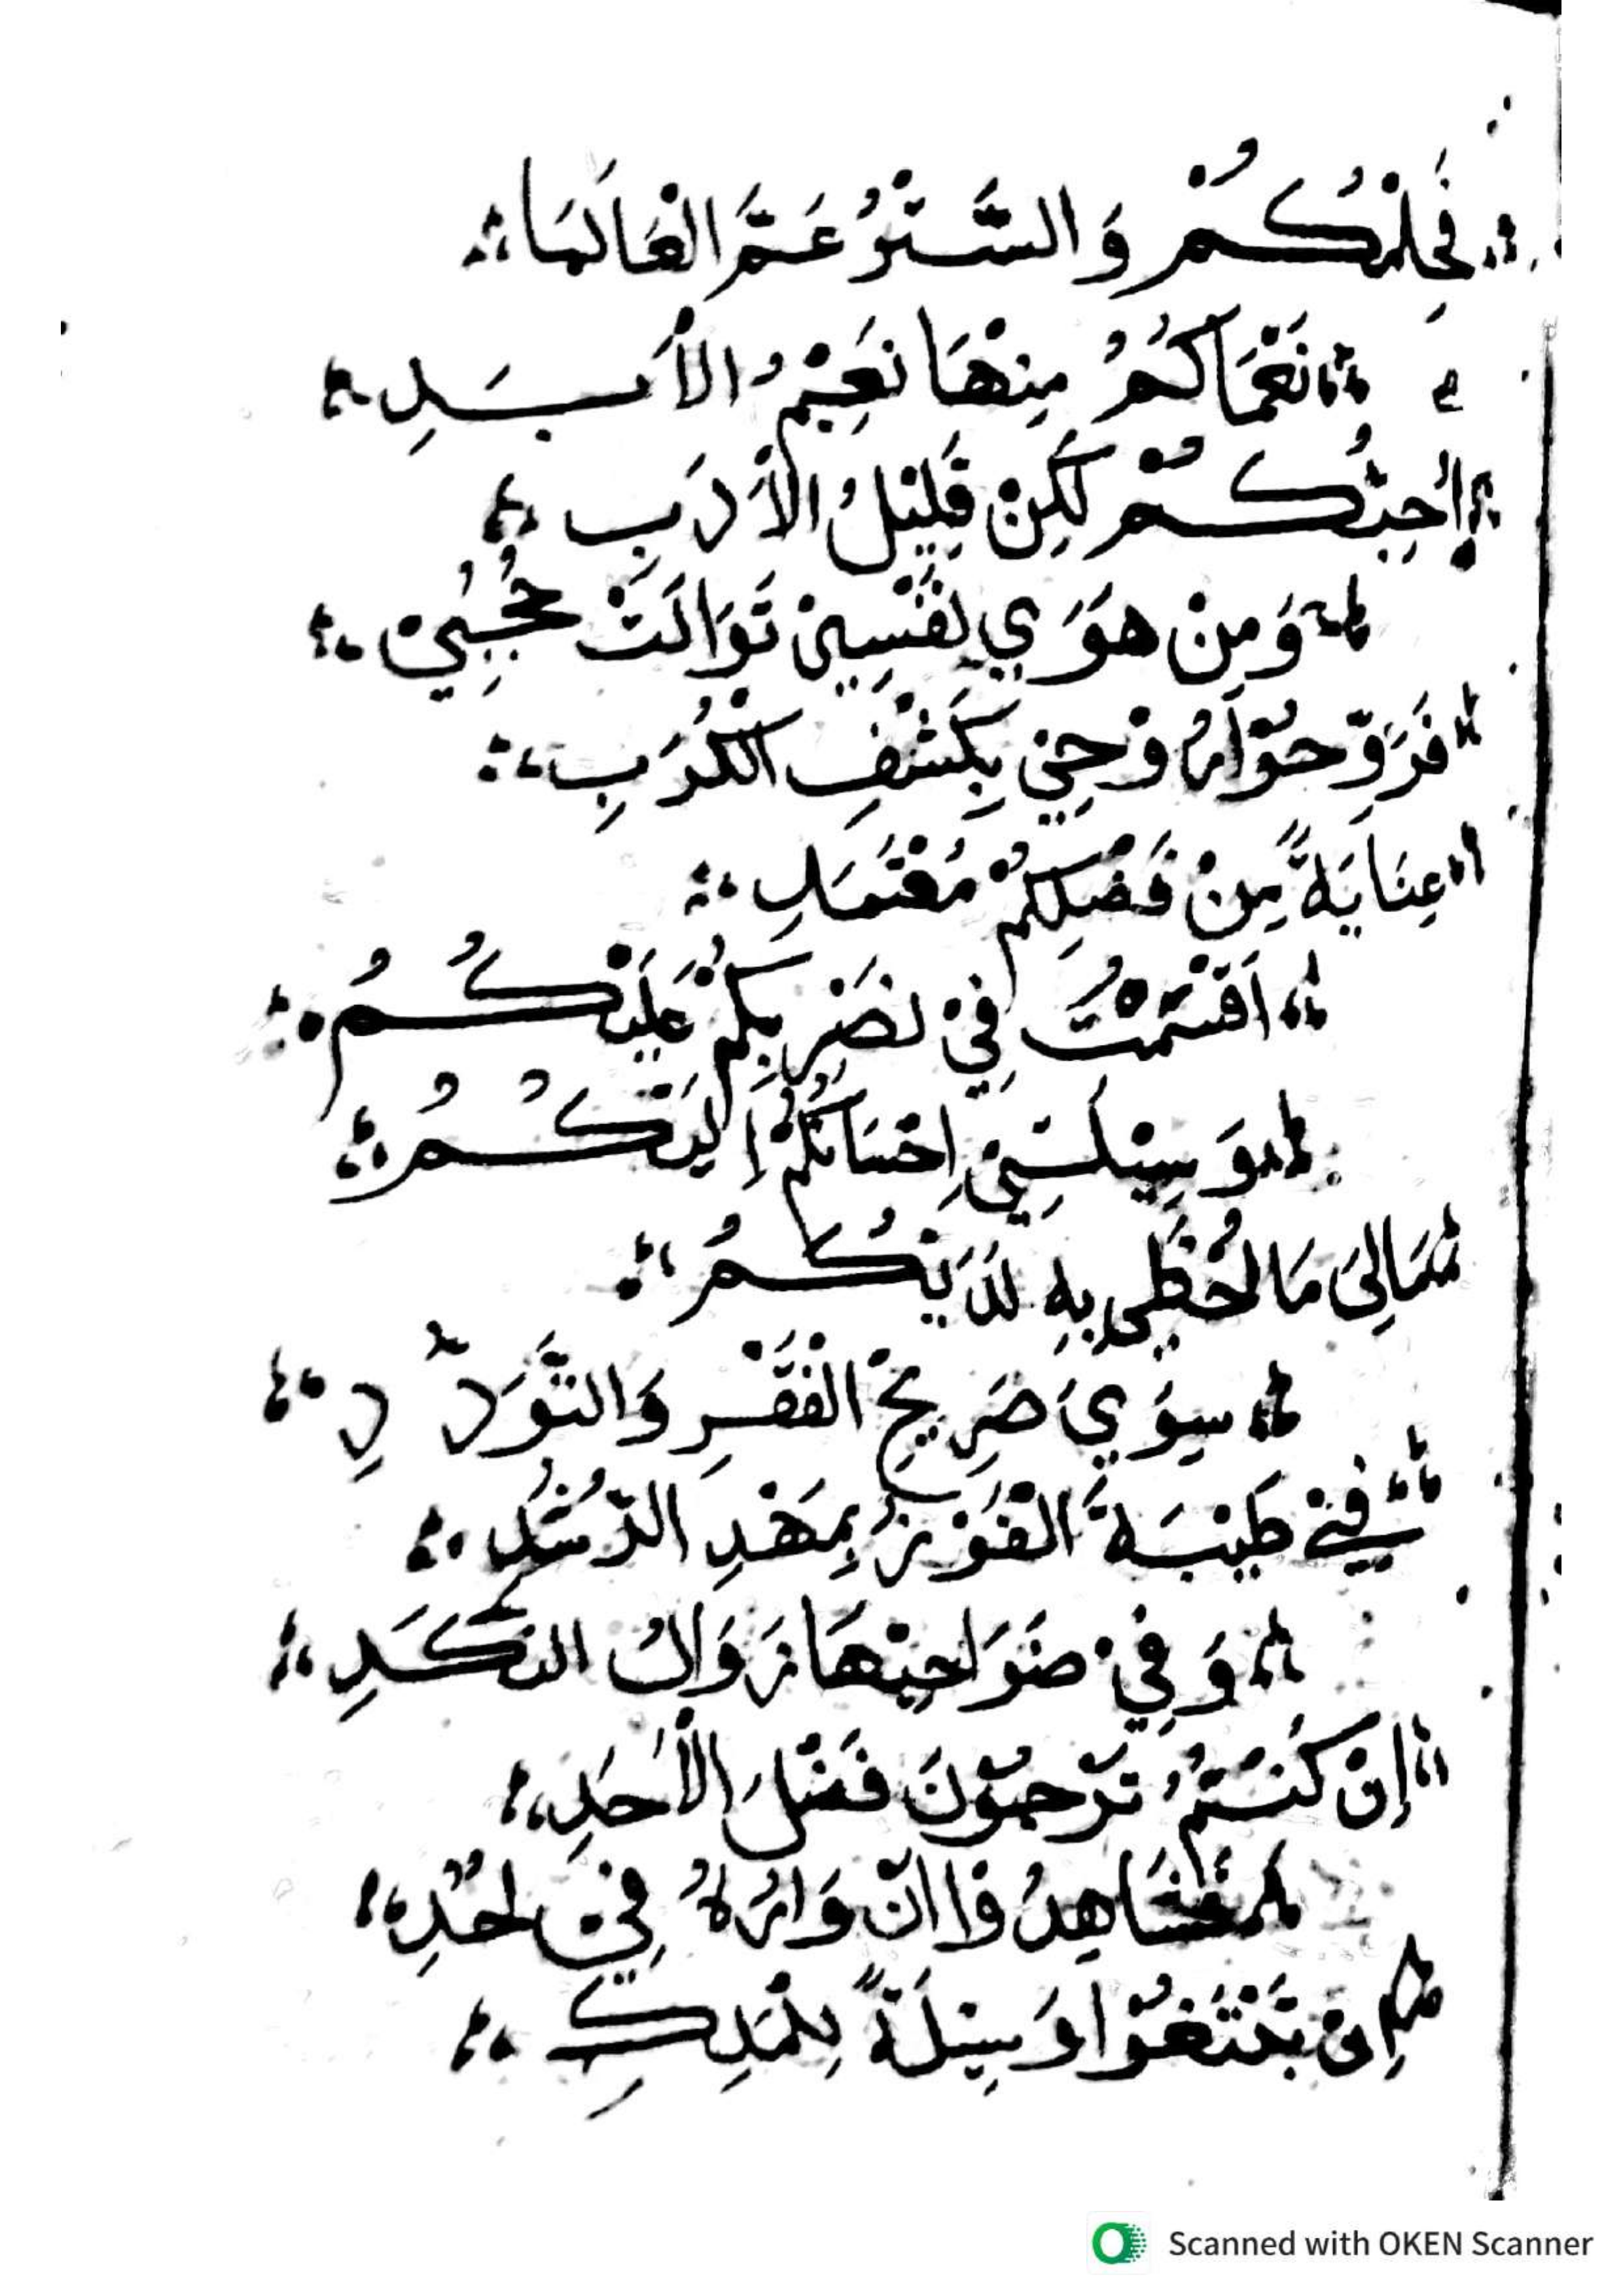 فَحِلْمُكُمْ وَالسَّتْرُ عَمَّ الْعَالَمَا
نَعْمَاكُمُ مِنْهَا نَعِيْمُ الْأَبَدِ
أُحِبُّكُمْ لَكِنْ قَلِيْلُ الْأَدَبِ
وَمِنْ هَوَي نَفْسِيْ تَوَالَتْ حُجُبِيْ
فَرَوِّحُوْا رُوْحِيْ بِكَشْفِ الْكُرَبِ
عِنَايَةً مِنْ فَضْلِكُمْ مُعْتَمَدِ
اَقْسَمْتُ فِيْ نَصْرِ بِكُمْ عَلَيْكُمُ
وَسِيْلَتِيْ اِحْسَانُكُمْ اِلَيْكُمُ
مَالِىَ مَا اُحْظَى بِهِ لَدَيْكُمُ
سِوَيَ صَرِيْحِ الْفَقْرِ وَالتَّوَدُّدِ
فِيْ طَيْبَةَ الْفَوْزُ بِمَهْدِ الرُّشْدِ
وَفِيْ ضَوَاحِيْهَا زَوَالُ النَّكَدِ
إِنْ كُنْتُمُ تَرْجُوْنَ فَضْلَ الْأَحَدِ
فَشَاهِدُوْا اَنْوَارَهُ فِيْ اُحُدِ
اِنْ تَبْتَغُوْا وَسِيْلَةً لِلْمَلِكِ
Scanned with OKEN Scanner